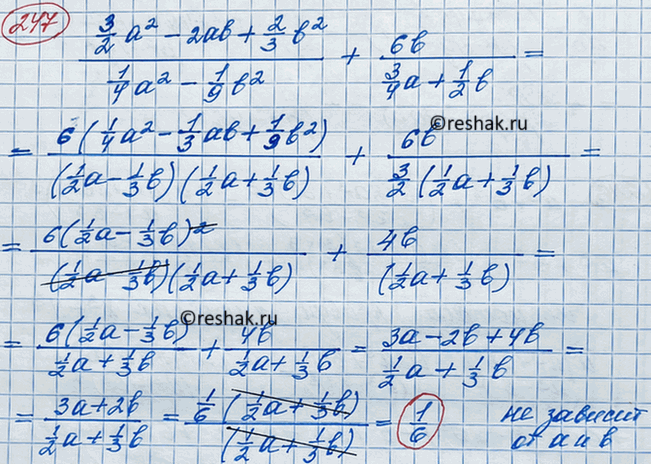 247
(3/2 a² - 2ab + 2/3 b²)/(1/4 a² - 1/9 b²) + 6b/(3/4 a + 1/2 b) =
= 6(1/4 a² - 1/3 ab + 1/9 b²)/((1/2 a - 1/3 b)(1/2 a + 1/3 b)) + 6b/(3/2 (1/2 a + 1/3 b)) =
©reshak.ru
= 6(1/2 a - 1/3 b)²/((1/2 a - 1/3 b)(1/2 a + 1/3 b)) + 4b/((1/2 a + 1/3 b)) =
©reshak.ru
= 6(1/2 a - 1/3 b)/(1/2 a + 1/3 b) + 4b/(1/2 a + 1/3 b) = (3a - 2b + 4b)/(1/2 a + 1/3 b) =
= (3a + 2b)/(1/2 a + 1/3 b) = 1/6 (1/2 a + 1/3 b)/((1/2 a + 1/3 b)) = 1/6 не зависит
от a и b